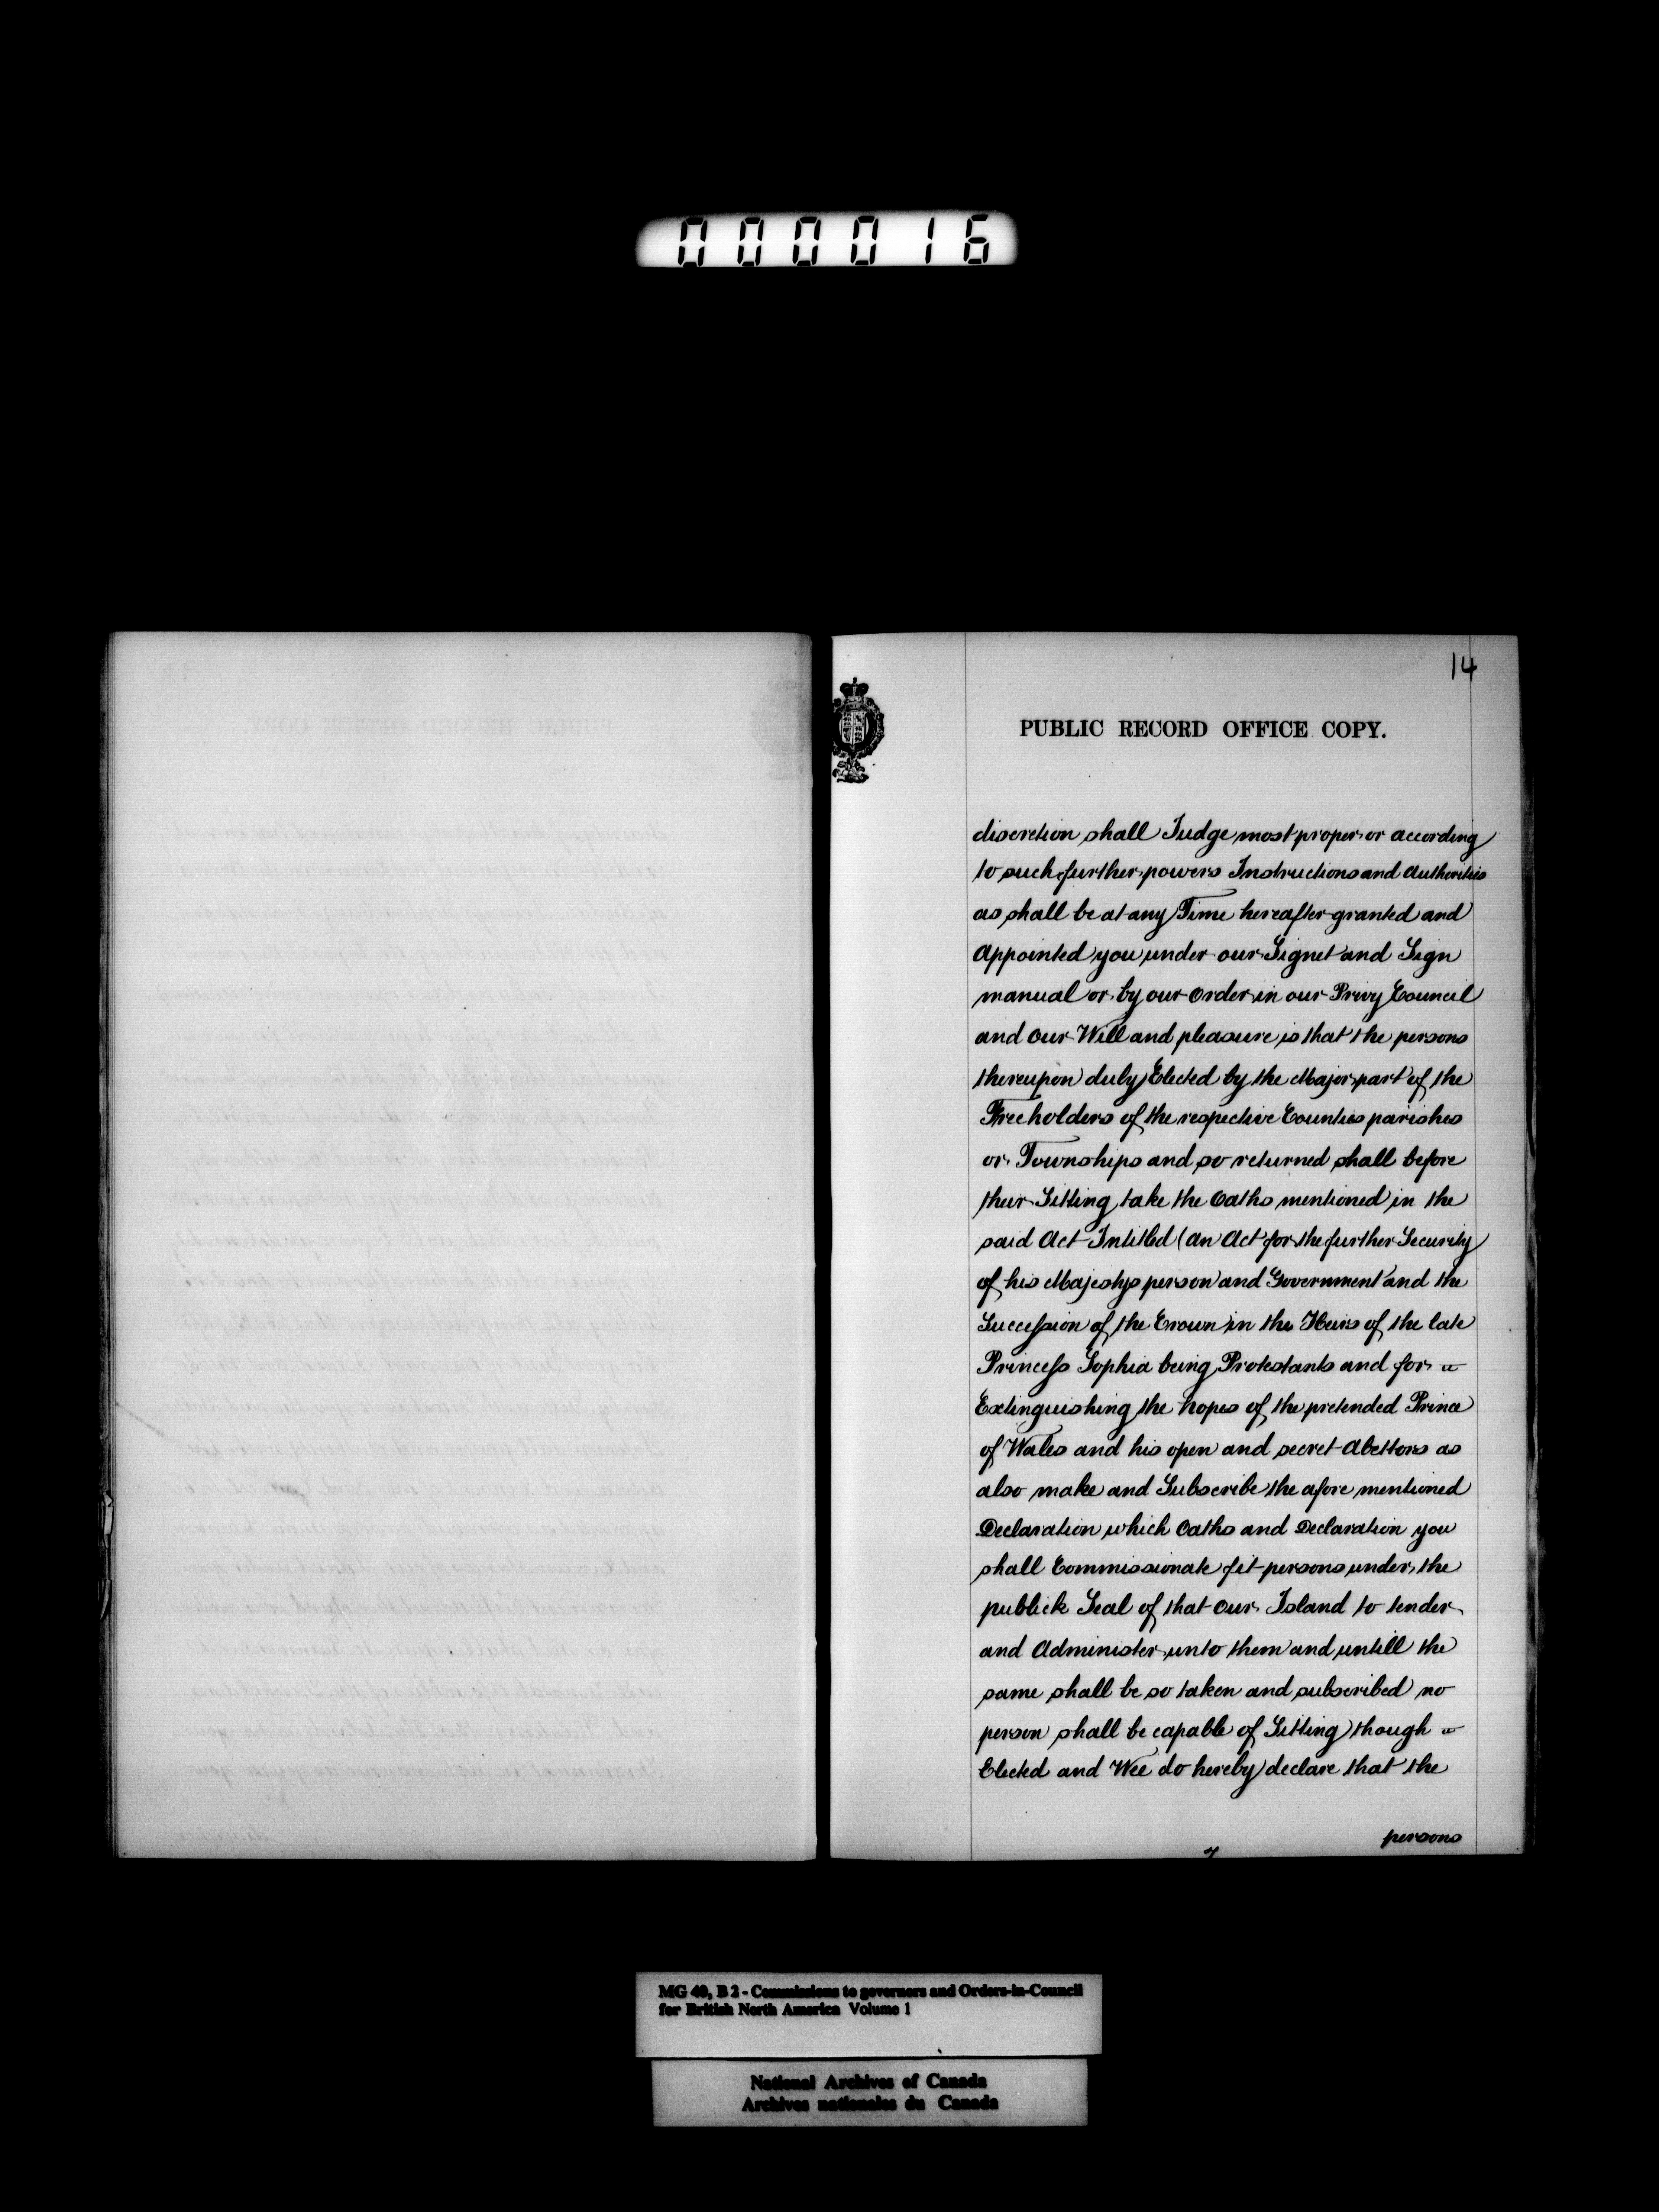 000016
14
PUBLIC RECORD OFFICE COPY.
discretion shall Judge most proper or according
to such further powers Instructions and Authorities
as shall be at any Time hereafter granted and
Appointed you under our Signet and Sign
manual or by our Order in our Privy Council
and our Will and pleasure is that the persons
thereupon duly Elected by the Major part of the
Freeholders of the respective Counties parishes
or Townships and so returned shall before
their Sitting take the Oaths mentioned in the
said Act Intitled (an Act for the further Security
of his Majestys person and Government and the
Succession of the Crown in the Heirs of the late
Princess Sophia being Protestants and for
Extinguishing the hopes of the pretended Prince
of Wales and his open and secret Abettors as
also make and Subscribe the afore mentioned
Declaration which Oaths and Declaration you
shall Commissionate fit persons under the
publick Seal of that our Island to tender
and Administer unto them and untill the
same shall be so taken and subscribed no
person shall be capable of Sitting though
Elected and Wee do hereby declare that the
persons
MG 40, B 2 - Commissions to governors and Orders-in-Council
for British North America Volume 1
National Archives of Canada
Archives nationales du Canada